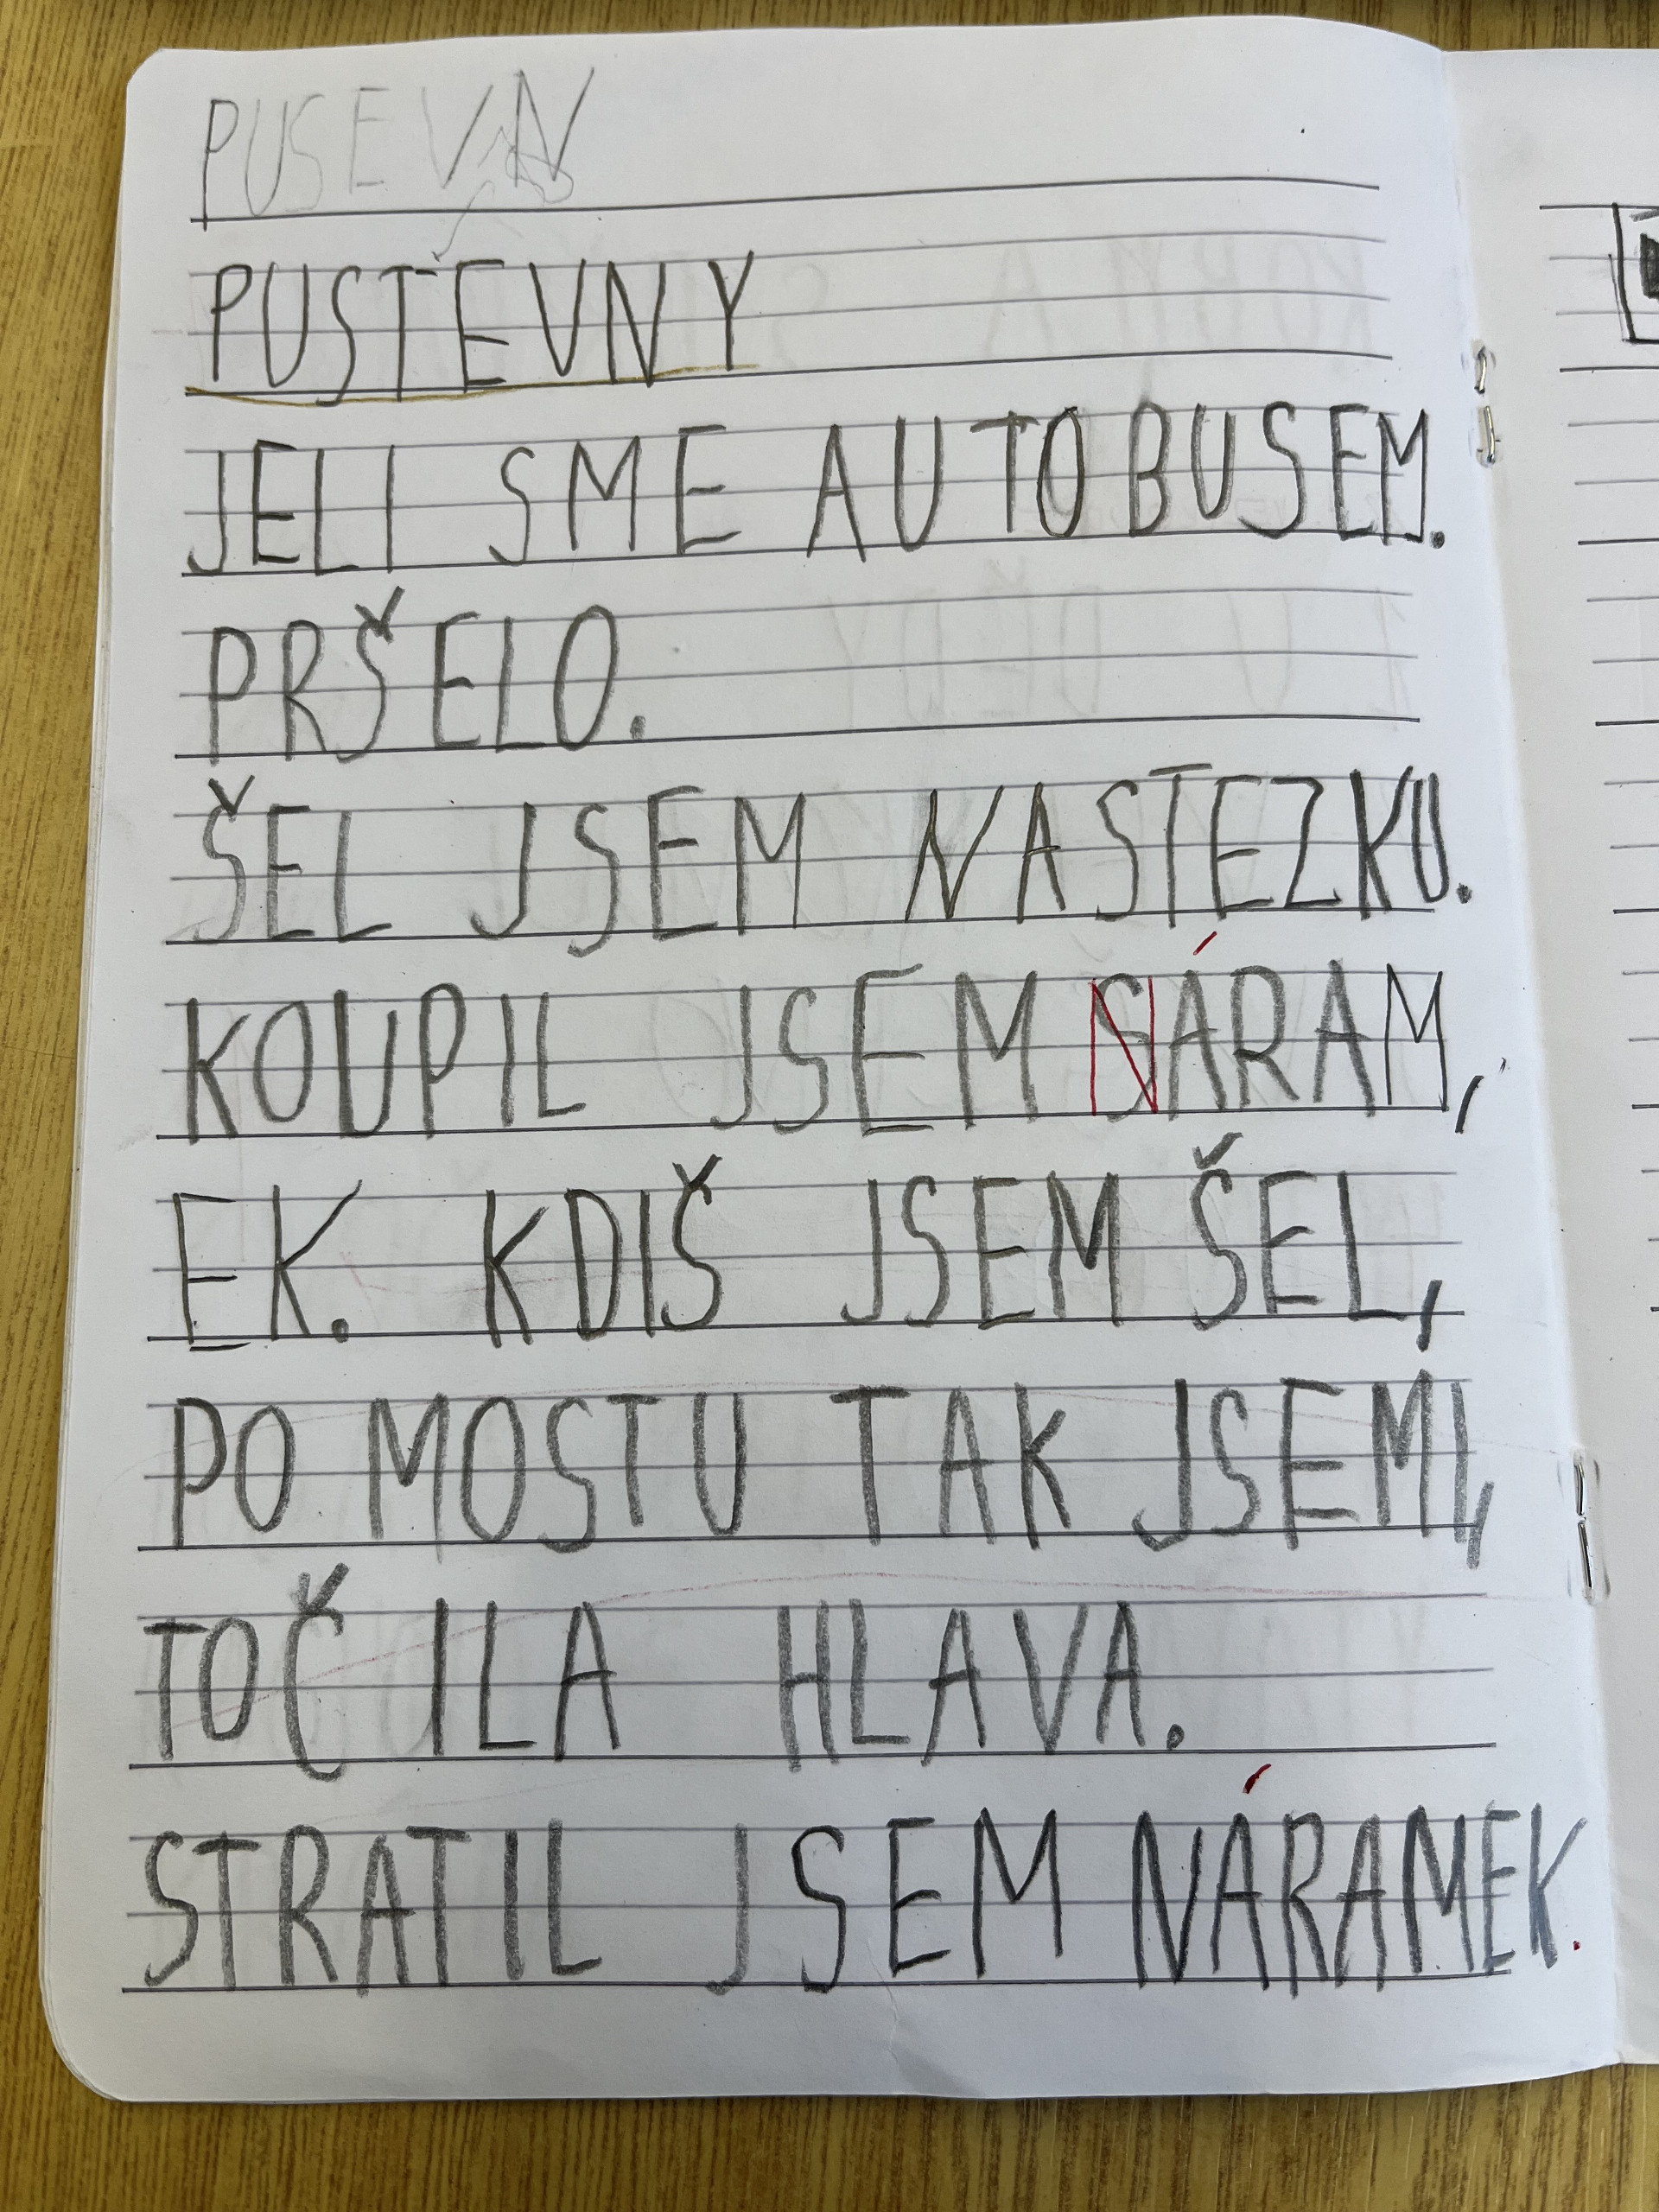 PUSEVN
PUSTEVNY
JELI SME AUTOBUSEM.
PRŠELO.
ŠEL JSEM NA STEZKU.
KOUPIL JSEM NÁRAM,
EK. KDIŠ JSEM ŠEL,
PO MOSTU TAK JSEMI,
TOČILA HLAVA.
STRATIL JSEM NÁRAMEK.